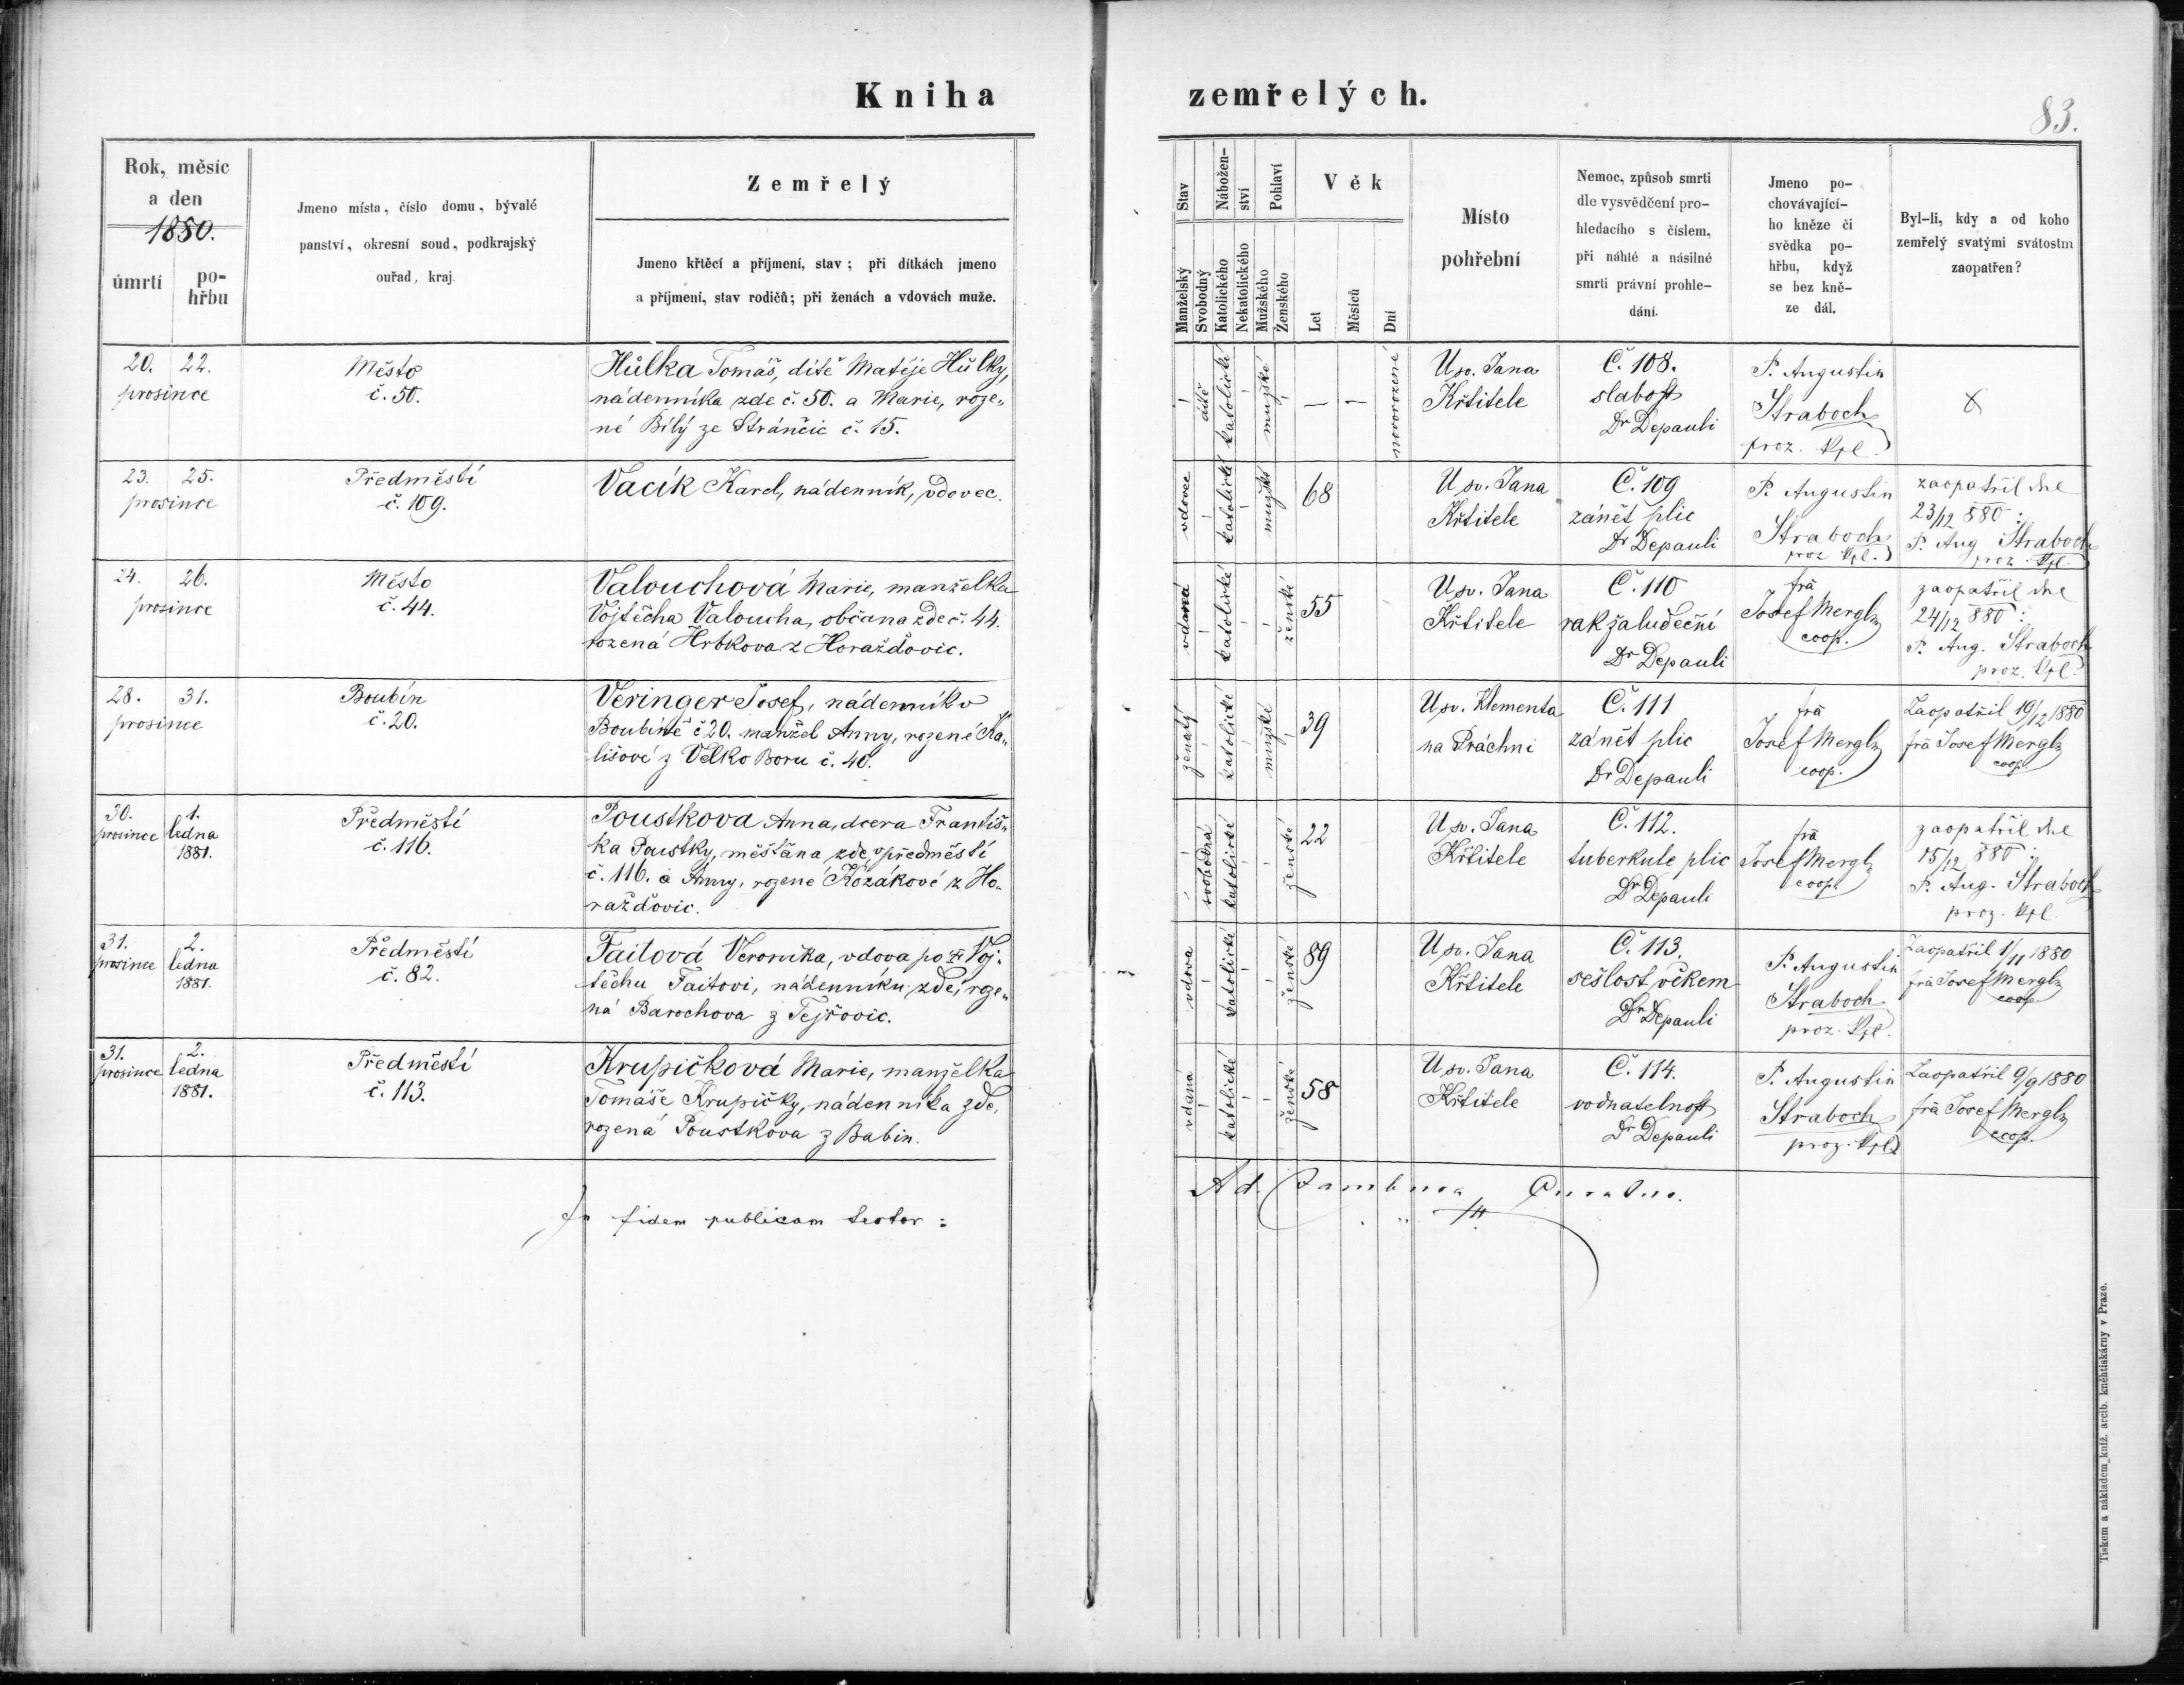 Kniha zemřelých.
83.
Rok, měsíc
a den
1880.
úmrtí
po-
hřbu
Jmeno místa, číslo domu, bývalé
panství, okresní soud, podkrajský
ouřad, kraj.
Zemřelý
Jmeno křtěcí a příjmení, stav; při dítkách jmeno
a příjmení, stav rodičů; při ženách a vdovách muže.
Stav
Manželský
Svobodný
Nábožen-
ství
Katolického
Nekatolického
Pohlaví
Mužského
Ženského
Věk
Let
Měsíců
Dní
Místo
pohřební
Nemoc, způsob smrti
dle vysvědčení pro-
hledacího s číslem,
při náhlé a násilné
smrti právní prohle-
dání.
Jmeno po-
chovávající-
ho kněze či
svědka po-
hřbu, když
se bez kně-
ze dál.
Byl-li, kdy a od koho
zemřelý svatými svátostmi
zaopatřen?
20. 22.
prosince
Město
č. 50.
Hůlka Tomáš, dítě Matěje Hůlky,
nádenníka zde č. 50. a Marie, roze„
né Bílý ze Stránčic č. 15.
dítě
katolické
mužské
— —
novorozené
U sv. Jana
Křtitele
Č. 108.
slabost
Dr Depauli
P. Augustin
Straboch
proz. kpl.
23. 25.
prosince
Předměstí
č. 109.
Vacík Karel, nádenník, vdovec.
vdovec
katolické
mužské
68
U sv. Jana
Křtitele
Č. 109
zánět plic
Dr Depauli
P. Augustin
Straboch
proz kpl.
zaopatřil dne
23/12 880:
P. Aug Straboch
proz. kpl.
24. 26.
prosince
Město
č. 44.
Valouchová Marie, manželka
Vojtěcha Valoucha, občana zde č. 44.
rozená Hrbkova z Horažďovic.
vdaná
katolické
ženské
55
U sv. Jana
Křtitele
Č. 110
rak žaludeční
Dr Depauli
frá
Josef Mergl
coop.
zaopatřil dne
24/12 880:
P. Aug. Straboch
proz. kpl.
28. 31.
prosince
Boubín
č. 20.
Veringer Josef, nádenník v
Boubíně č 20. manžel Anny, rozené Ka„
lišové z Velko Boru č. 40.
ženatý
katolické
mužské
39
U sv. Klementa
na Práchni
Č. 111
zánět plic
Dr Depauli
frá
Josef Mergl
coop.
Zaopatřil 19/12 1880
frá Josef Mergl
coop.
30. 1.
prosince ledna
1881.
Předměstí
č. 116.
Poustkova Anna, dcera Františ„
ka Poustky, měšťana zde předměstí
č. 116. a Anny, rozené Kozákové z Ho„
ražďovic.
svobodná
katolické
ženské
22
U sv. Jana
Křtitele
Č. 112.
tuberkule plic
Dr Depauli
frá
Josef Mergl
coop.
zaopatřil dne
15/12 880:
P. Aug. Straboch
proz. kpl.
31. 2.
prosince ledna
1881.
Předměstí
č. 82.
Faitová Veronika, vdova po Voj„
těchu Faitovi, nádenníku zde, roze„
ná Barochova z Tejřovic.
vdova
katolické
ženské
89
U sv. Jana
Křtitele
Č. 113.
sešlost věkem
Dr Depauli
P. Augustin
Straboch
proz. kpl.
Zaopatřil 1/11 1880
frá Josef Mergl
coop.
31. 2.
prosince ledna
1881.
Předměstí
č. 113.
Krupičková Marie, manželka
Tomáše Krupičky, nádenníka zde,
rozená Poustkova z Babin.
vdaná
katolické
ženské
58
U sv. Jana
Křtitele
Č. 114.
vodnatelnost
Dr Depauli
P. Augustin
Straboch
proz. kpl.
Zaopatřil 9/9 1880
frá Josef Mergl
coop.
In fidem publicam testor:
Ad.
Tiskem a nákladem kníž. arcib. kněhtiskárny v Praze.